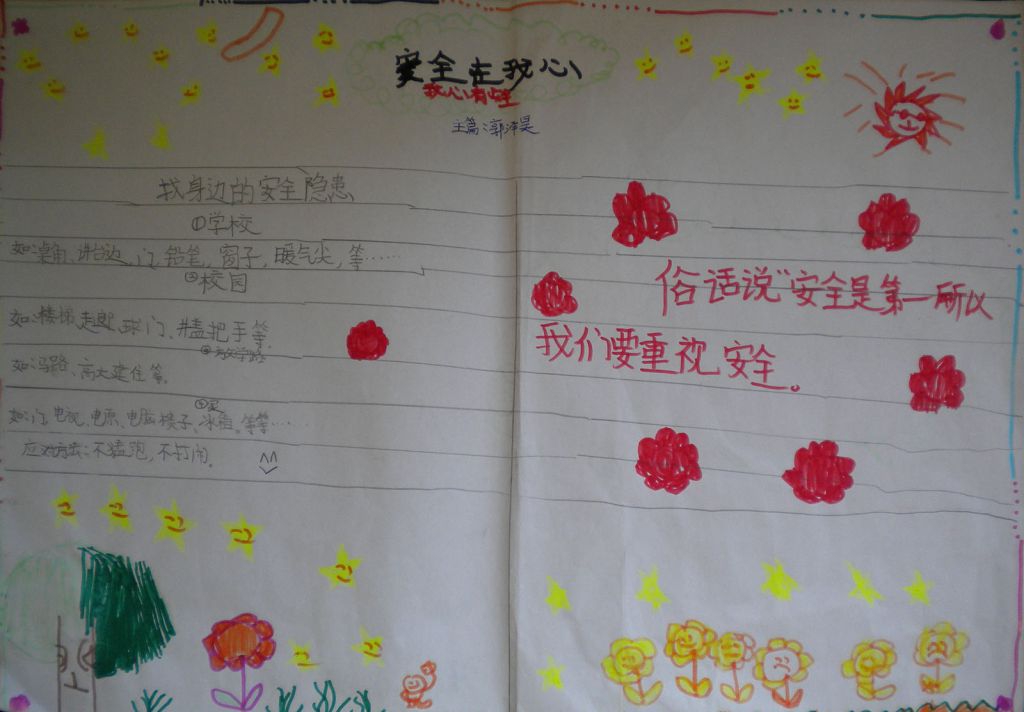 安全在我心
主篇：郭泽昊
找身边的安全隐患
①学校
如：桌角、讲台边、门、铅笔，窗子，暖气尖，等……
②校园
如：楼梯、走廊、球门、井盖把手等。
③放学路
如：马路、高大建住等。
④家
如：门、电视、电原、电脑、椅子、冰箱。等等……
应对方法：不猛跑，不打闹。
俗话说“安全是第一所以
我们要重视安全。